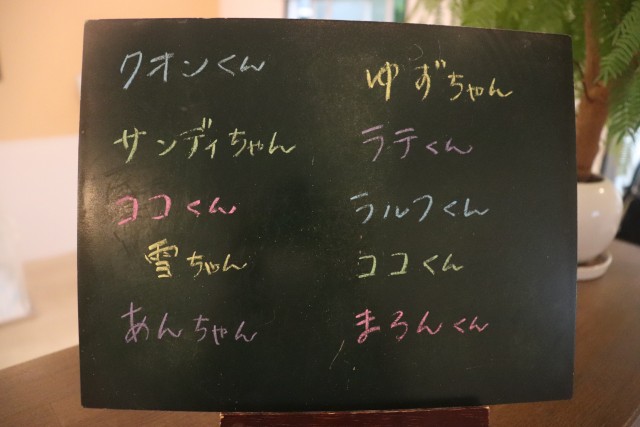 クオンくん
サンディちゃん
ココくん
雪ちゃん
あんちゃん
ゆずちゃん
ラテくん
ラルフくん
ココくん
まろんくん